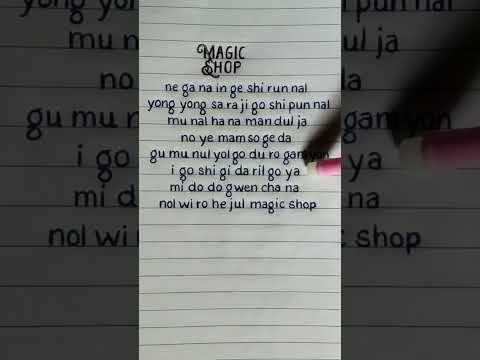 MAGIC
SHOP
ne ga na in ge shi run nal
yong yong sa ra ji go shi pun nal
mu nal ha na man dul ja
no ye mam so ge da
gu mu nul yol go du ro gam yon
i go shi gi da ril go ya
mi do do gwen cha na
nol wi ro he jul magic shop